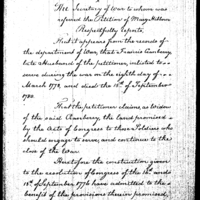 The Secretary of War to whom was
referred the Petition of Mary
Respectfully reports,
That it appears from the records of
the department of War, that Francis
late Husband of the petitioner, inlisted to
serve during the war on the eighth day of
March 1777, and died the 15th of September
1780.
That the petitioner claims, as widow
of the said the land promised
by the Acts of Congress to those Soldiers who
should engage to serve, and continue to the
close of the War.
That before the constitution given
to the resolution of Congress of the 16th and
18th September 1776 have admitted to the
benefit of the provisions therein promised,